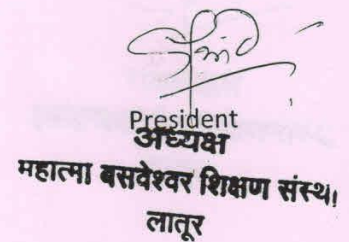 President
अध्यक्ष
महात्मा बसवेश्वर शिक्षण संस्था
लातूर